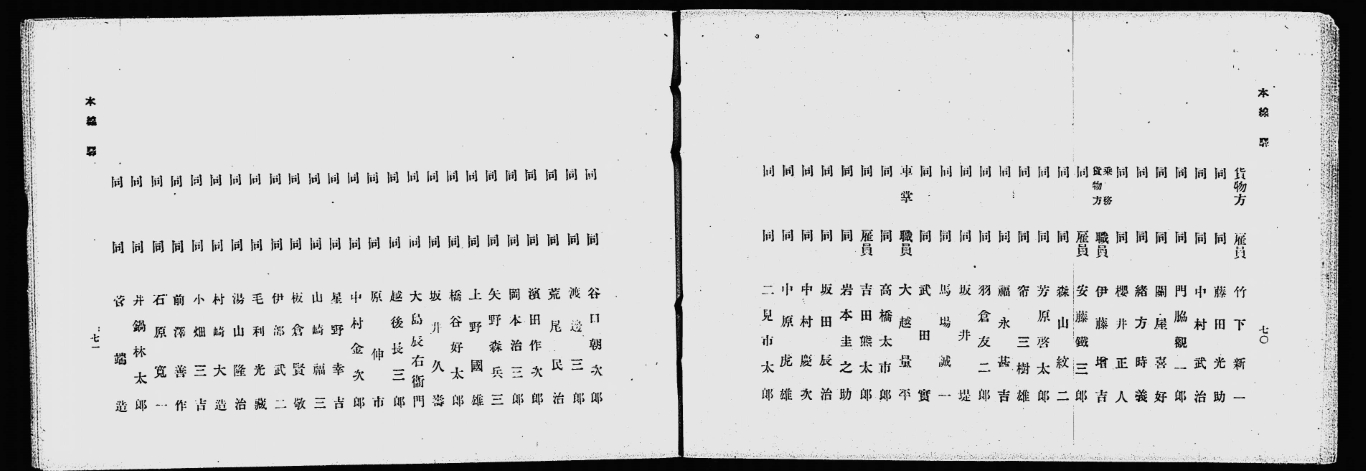 本線 驛
七〇
貨物方 雇員 竹下新一
同 同 藤田光助
同 同 中村武治
同 同 門脇觀一郎
同 同 關屋喜好
同 同 緒方時義
同 同 櫻井正人
乘務貨物方 職員 伊藤增吉
同 雇員 安藤鐵三郎
同 同 森山紋二
同 同 芳原啓太郎
同 同 帘三樹雄
同 同 福永甚吉
同 同 羽倉友二郎
同 同 坂井堤
同 同 馬場誠一
同 同 武田實
車掌 職員 大越量平
同 同 高橋太市郎
同 雇員 吉田熊太郎
同 同 岩本圭之助
同 同 坂田辰治
同 同 中村慶次
同 同 中原虎雄
同 同 二見市太郎
本線 驛
七一
同 同 谷口朝次郎
同 同 渡邊三郎
同 同 荒尾民治
同 同 濱田作次郎
同 同 岡本治三郎
同 同 矢野森兵三
同 同 上野國雄
同 同 橋谷好太郎
同 同 坂井久壽
同 同 大島辰右衞門
同 同 越後長三郎
同 同 原伸市
同 同 中村金次郎
同 同 星野幸吉
同 同 山崎福三
同 同 板倉賢敬
同 同 伊部武二
同 同 毛利光藏
同 同 湯山隆治
同 同 村崎大造
同 同 小畑三吉
同 同 前澤善作
同 同 石原寬一
同 同 井鍋林太郎
同 同 菅端造